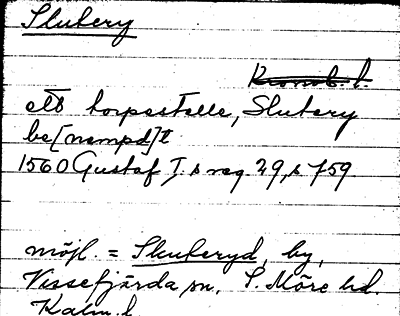 Slubery
Kronob. l.
ett torpestelle, Slubery
be[nempd]t
1560 Gustaf I:s reg. 29, s 759
möjl. = Skuberyd, by,
Vissefjärda sn, S. Möre hd.
Kalm. l